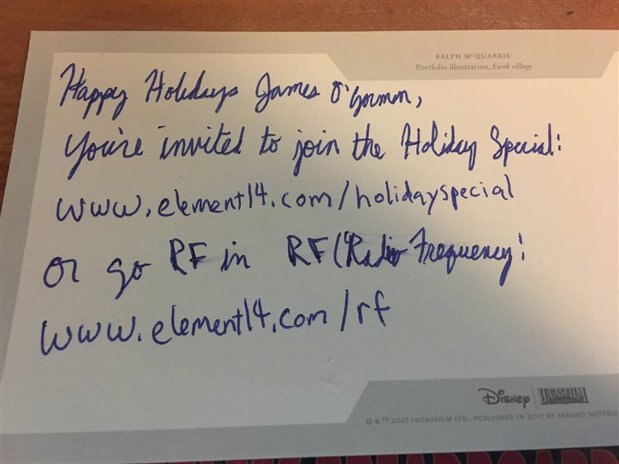 RALPH McQUARRIE
Portfolio illustration, Ewok village
Happy Holidays James O'Gorman,
You're invited to join the Holiday Special:
www.element14.com/holidayspecial
or go RF in RF (Radio Frequency:
www.element14.com/rf
Disney LUCASFILM
© & ™ 2017 LUCASFILM LTD. PUBLISHED IN 2017 BY ABRAMS NOTERIE